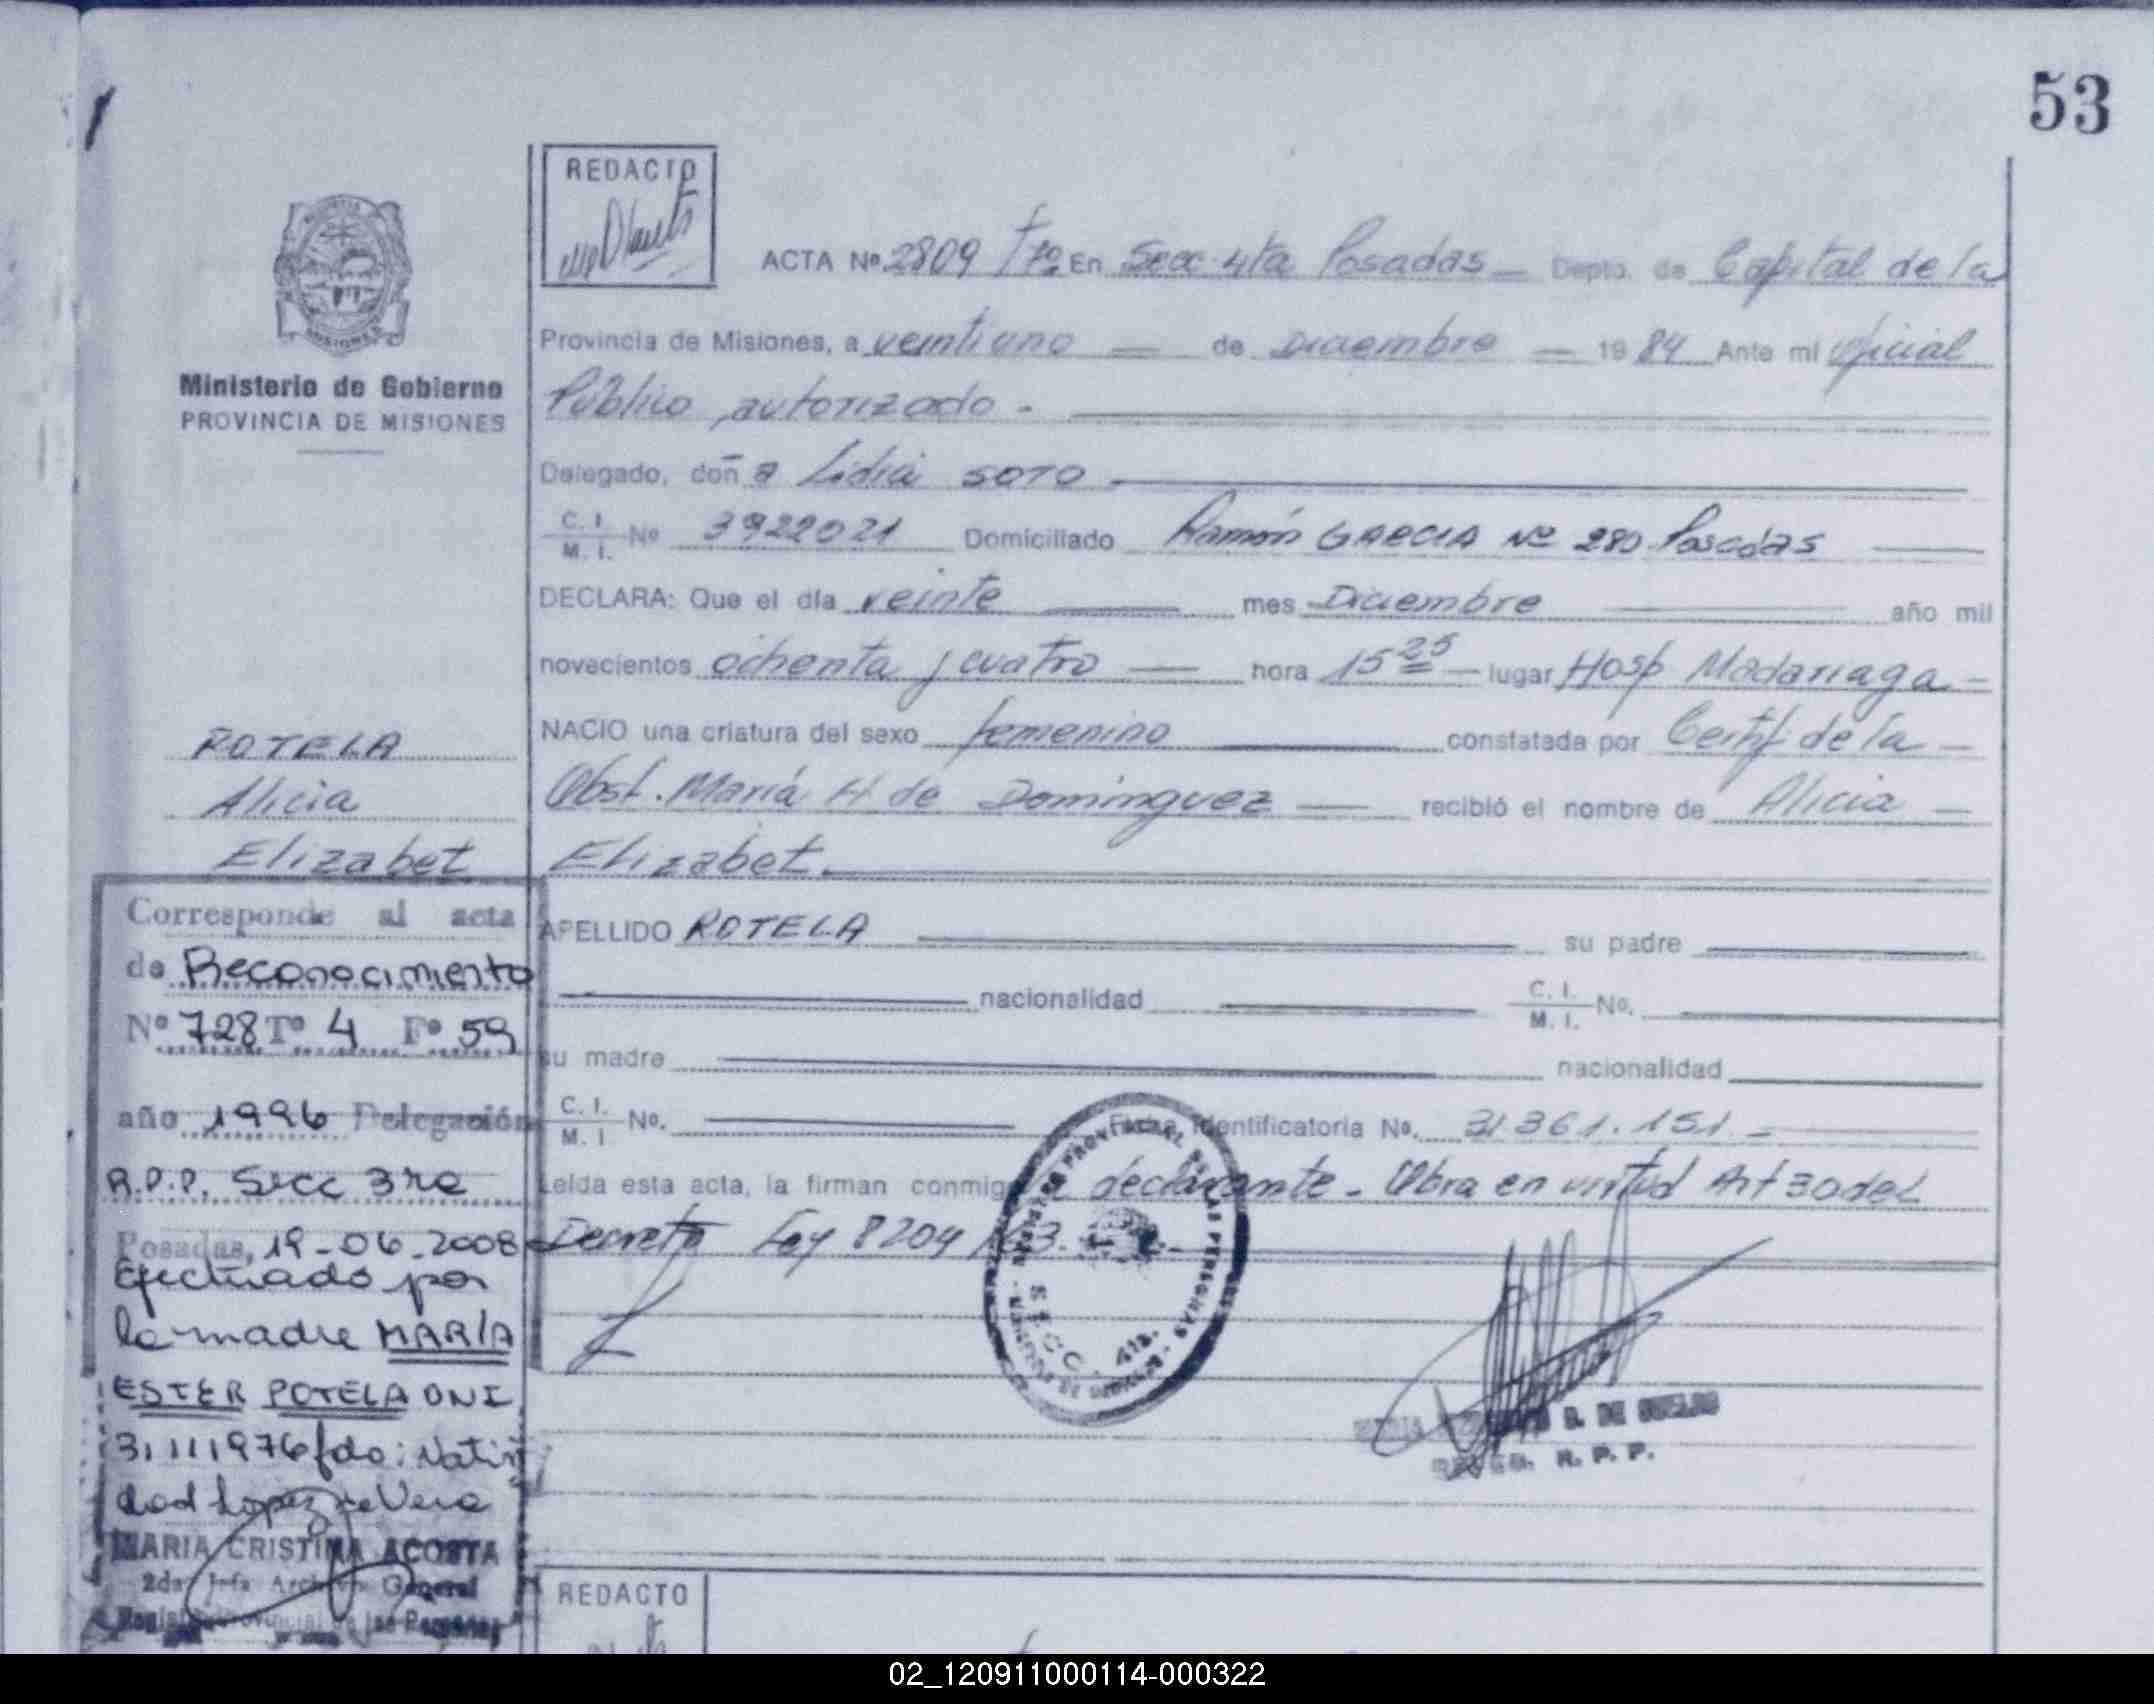 53
REDACTO
ACTA Nº 2809 Tº 7º En Secc 4ta Posadas Depto. de Capital de la
Provincia de Misiones, a veintiuno de Diciembre 1984 Ante mi Oficial
Ministerio de Gobierno
PROVINCIA DE MISIONES
Público autorizado.
Delegado, doña Lidia SOTO
C. I. / M. I. Nº 3922021 Domiciliado Ramón GARCIA Nº 280 Posadas
DECLARA: Que el día veinte mes Diciembre año mil
novecientos ochenta y cuatro hora 15 25 lugar Hosp Madariaga
NACIO una criatura del sexo femenino constatada por Certif de la
Obst. María H de Dominguez recibió el nombre de Alicia
Elizabet.
APELLIDO ROTELA su padre
nacionalidad C. I. / M. I. No.
su madre nacionalidad
C. I. / M. I No. Ficha Identificatoria No. 31361.151
Leída esta acta, la firman conmigo declarante. Obra en virtud Art 30 del
Decreto Ley 8204/63.
ROTELA
Alicia
Elizabet
Corresponde al acta
de Reconocimiento
Nº 728 Tº 4 Fº 59
año 1996 Delegación
R.P.P. Secc 3ra
Posadas, 19-06-2008
Efectuado por
la madre MARIA
ESTER ROTELA DNI
31111976 fdo: Nativi
dad Lopez de Vera
MARIA CRISTINA ACOSTA
2da Jefa Archivo General
Registro Provincial de las Personas
REGISTRO PROVINCIAL DE LAS PERSONAS
SECC. 4ta.
R. P. P.
REDACTO
02_120911000114-000322